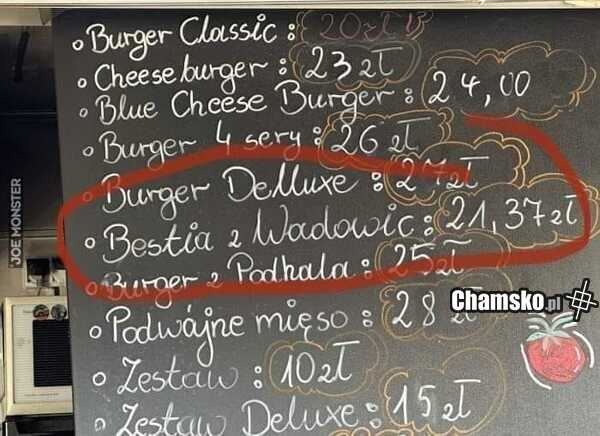 • Burger Classic: 20zł
• Cheeseburger: 23zł
• Blue Cheese Burger: 24,00
• Burger 4 sery: 26 zł
• Burger Delluxe: 27zł
• Bestia z Wadowic: 21,37zł
• Burger z Podhala: 25zł
• Podwójne mięso: 28 zł
• Zestaw: 10zł
• Zestaw Deluxe: 15zł
JOE MONSTER
Chamsko.pl